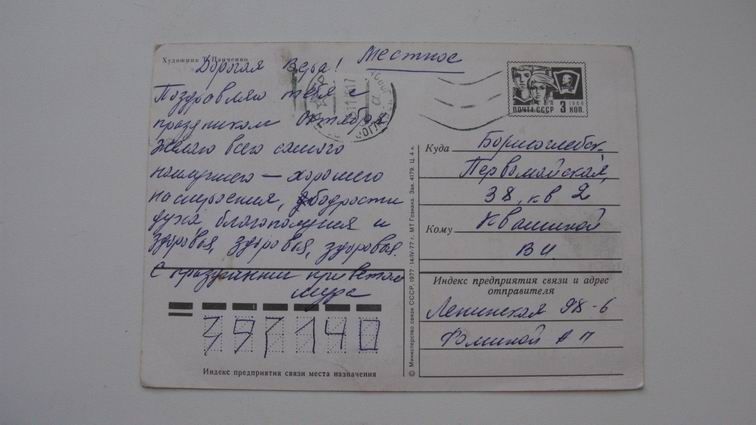 Художник В. Панченко
Местное
Дорогая Вера!
Поздравляю тебя с
праздником Октября.
Желаю всего самого
наилучшего — хорошего
настроения, бодрости
духа благополучия и
здоровья, здоровья, здоровья.
С праздничным приветом
ПОЧТА СССР 3 КОП.
Куда Борисоглебск
Первомайская,
38, кв 2
Кому Квашиной
В И
Индекс предприятия связи и адрес
отправителя
Ленинская 98-6
Фоминой А П
397140
Индекс предприятия связи места назначения
© Министерство связи СССР, 1977. 14/IV-77 г. МТ Гознака. Зак. 4179. Ц. 4 к.